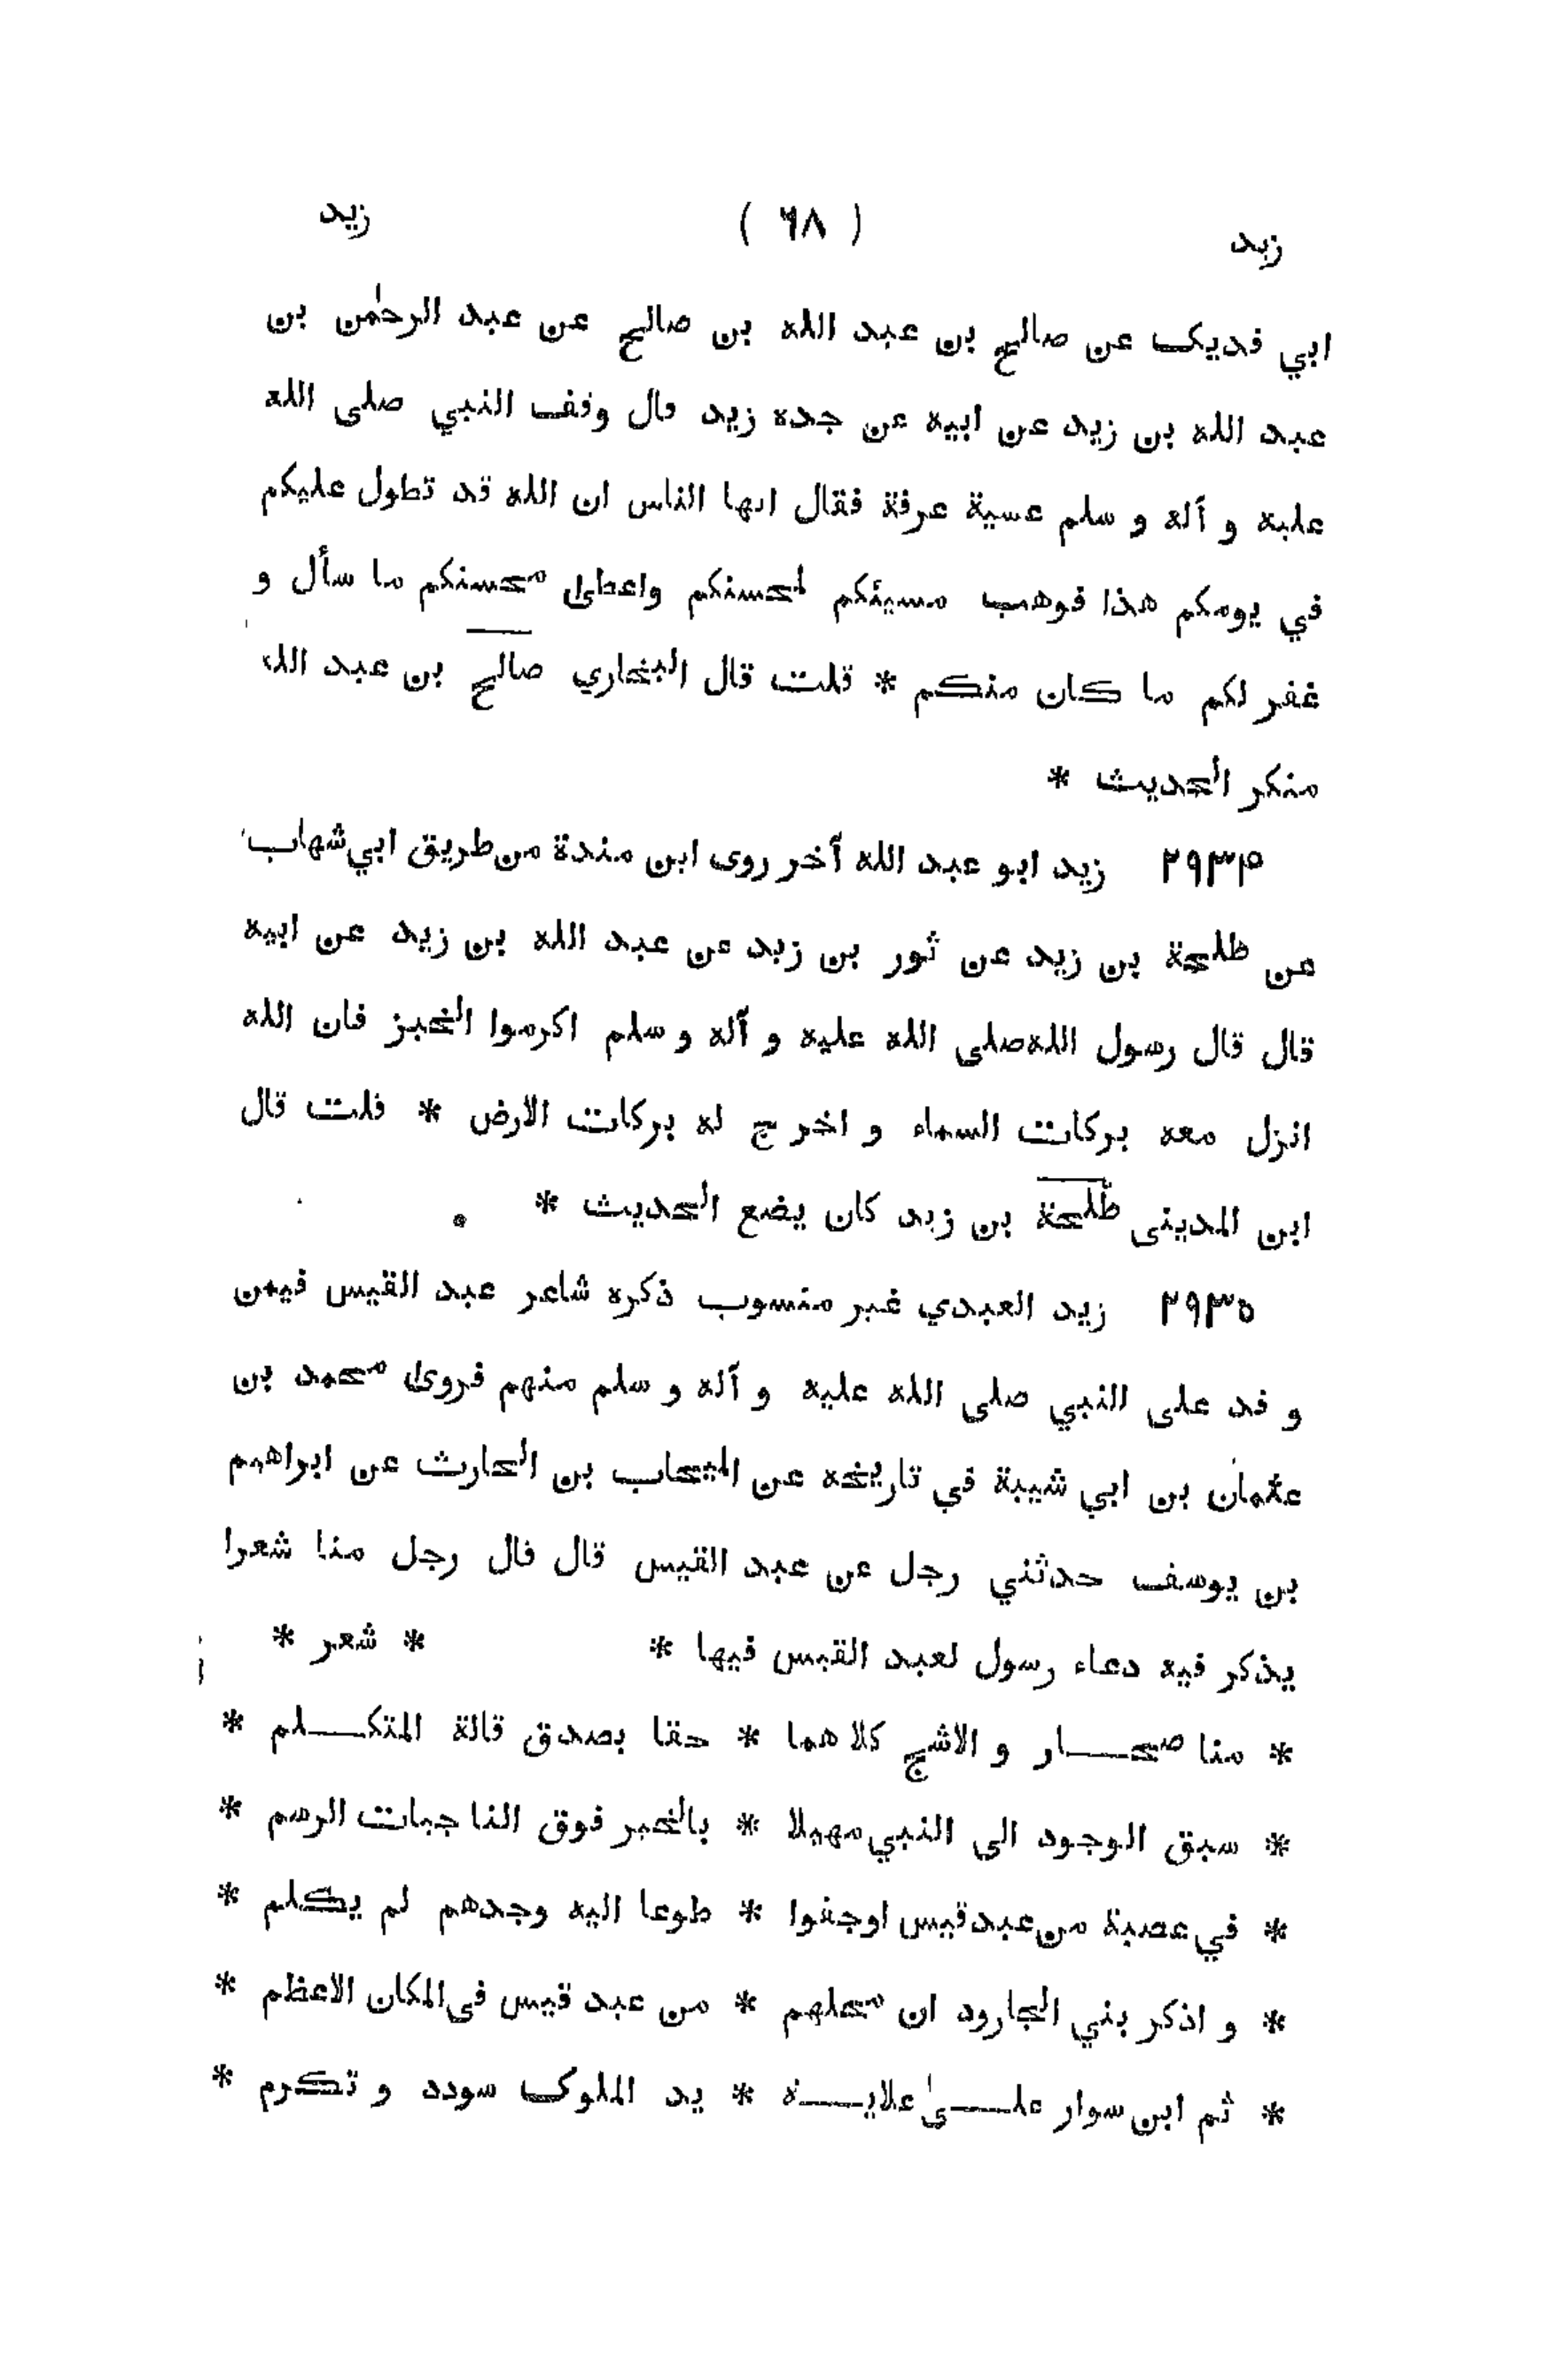 زيد ( ٦٨ ) زيد
ابي فديک عن صالح بن عبد الله بن صالح عن عبد الرحمٰن بن
عبد الله بن زيد عن ابيه عن جده زيد قال وقف النبي صلى الله
عليه و آله و سلم عسية عرفة فقال ايها الناس ان الله قد تطول عليكم
في يومكم هذا فوهب مسيئكم لمحسنكم واعطى محسنكم ما سأل و
غفر لكم ما كان منكم * قلت قال البخاري صالح بن عبد الله
منكر الحديث *
٢٩٣۴ زيد ابو عبد الله آخر روى ابن مندة من طريق ابي شهاب
عن طلحة بن زيد عن ثور بن زيد عن عبد الله بن زيد عن ابيه
قال قال رسول الله صلى الله عليه و آله و سلم اكرموا الخبز فان الله
انزل معه بركات السماء و اخرج له بركات الارض * قلت قال
ابن المدينى طلحة بن زيد كان يضع الحديث *
٢٩٣٥ زيد العبدي غير منسوب ذكره شاعر عبد القيس فيمن
و فد على النبي صلى الله عليه و آله و سلم منهم فروى محمد بن
عثمان بن ابي شيبة في تاريخه عن المنجاب بن الحارث عن ابراهيم
بن يوسف حدثني رجل عن عبد القيس قال قال رجل منا شعرا
يذكر فيه دعاء رسول لعبد القيس فيها * * شعر *
* منا صحـــار و الاشج كلا هما * حقا بصدق قالة المتكـــلم *
* سبق الوجود الى النبي مهيلا * بالخير فوق الناجيات الرسم *
* في عصبة من عبد قيس اوجفوا * طوعا اليه وجدهم لم يكلم *
* و اذكر بني الجارود ان محلهم * من عبد قيس فى المكان الاعظم *
* ثم ابن سوار علـــىٰ علايـــة * يد الملوک سودد و تكرم *